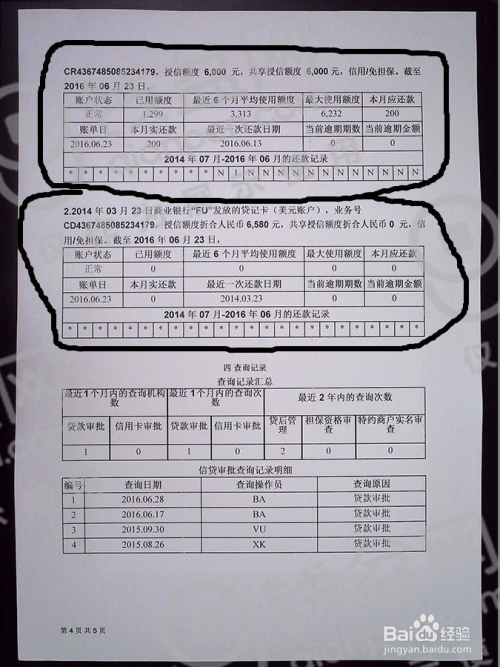 CR4367485085234179，授信额度 6,000 元，共享授信额度 6,000 元，信用/免担保。截至
2016 年 06 月 23 日，
账户状态 已用额度 最近 6 个月平均使用额度 最大使用额度 本月应还款
正常 1,299 3,313 6,232 200
账单日 本月实还款 最近一次还款日期 当前逾期期数 当前逾期金额
2016.06.23 200 2016.06.13 0 0
2014 年 07 月-2016 年 06 月的还款记录
2.2014 年 03 月 23 日商业银行“FU”发放的贷记卡（美元账户），业务号
CD4367485085234179，授信额度折合人民币 6,580 元，共享授信额度折合人民币 0 元，信
用/免担保。截至 2016 年 06 月 23 日，
账户状态 已用额度 最近 6 个月平均使用额度 最大使用额度 本月应还款
正常 0 0 0 0
账单日 本月实还款 最近一次还款日期 当前逾期期数 当前逾期金额
2016.06.23 0 2014.03.23 0 0
2014 年 07 月-2016 年 06 月的还款记录
* * * * * * * * * * * * * * * * * * * * * * * *
四 查询记录
查询记录汇总
最近 1 个月内的查询机构数 最近 1 个月内的查询次数 最近 2 年内的查询次数
贷款审批 信用卡审批 贷款审批 信用卡审批 贷后管理 担保资格审查 特约商户实名审查
1 0 1 0 2 0 0
信贷审批查询记录明细
编号 查询日期 查询操作员 查询原因
1 2016.06.28 BA 贷款审批
2 2016.06.17 BA 贷款审批
3 2015.09.30 VU 贷款审批
4 2015.08.26 XK 贷款审批
第 4 页 共 5 页
Baidu 经验
jingyan.baidu.com